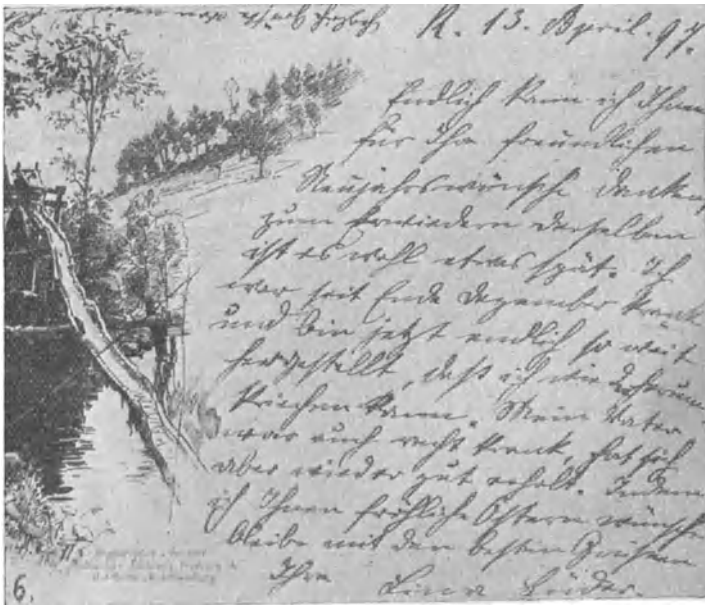 R. 13. April. 97.
Endlich kann ich Ihnen
für Ihre freundlichen
Neujahrswünsche danken,
zum Erwiedern derselben
ist es wohl etwas spät. Ich
war seit Ende Dezember krank
und bin jetzt endlich so weit
hergestellt, daß ich wieder herum
kriechen kann. Mein Vater
war auch recht krank, hat sich
aber wieder gut erholt. Indem
ich Ihnen fröhliche Ostern wünsche
bleibe mit den besten Grüßen
Ihre Lina Lüder.
6.